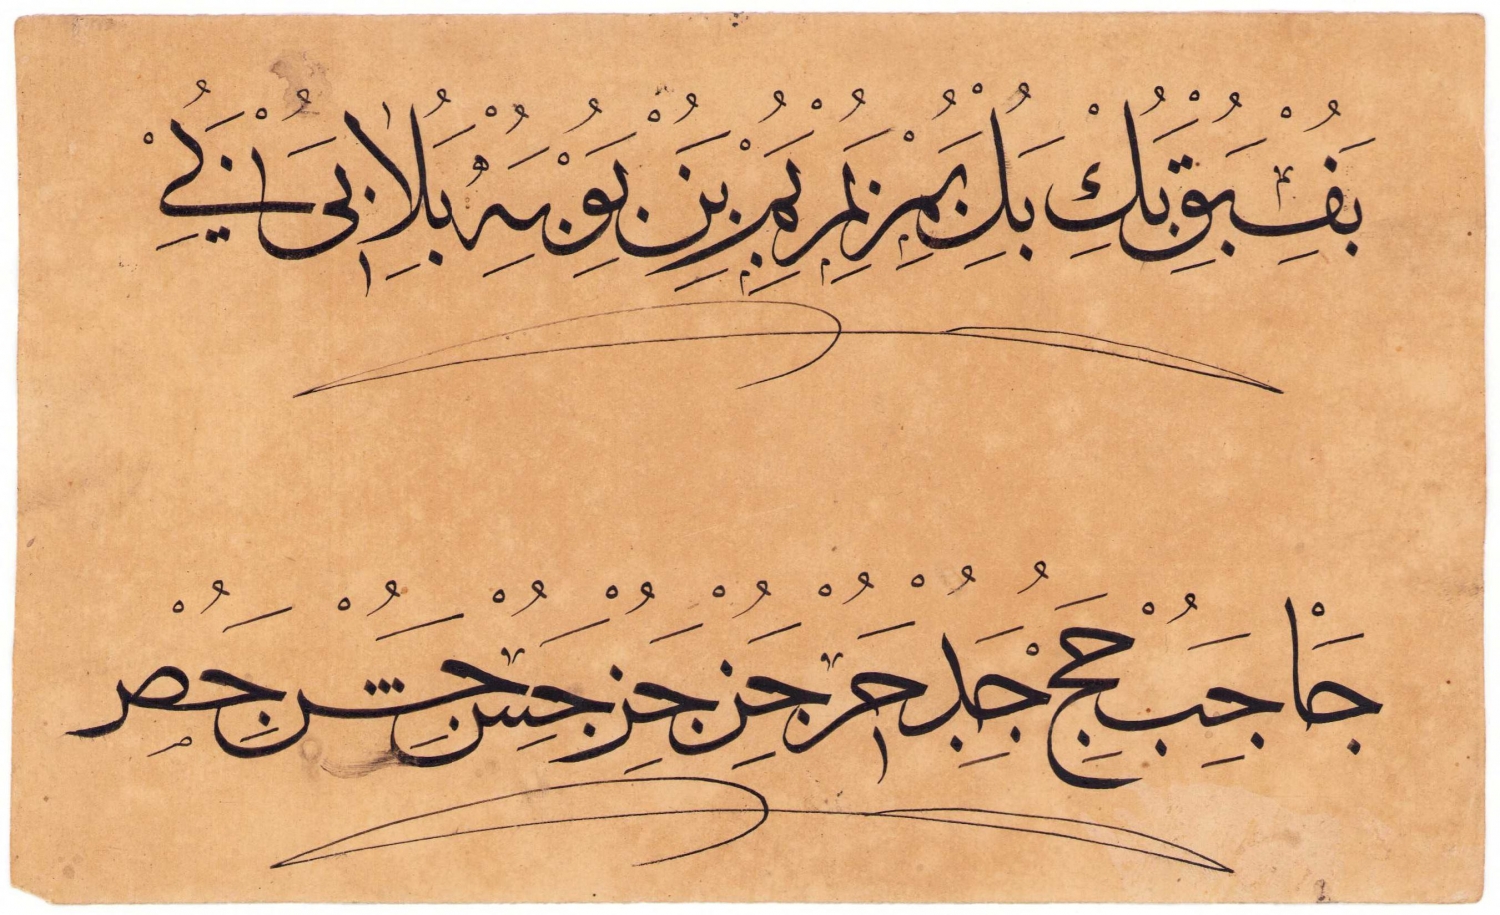 بف بق بك بل بم بم بم بن بن بو به بلا بى بي
جا جب جج جد حر جن جز جس جش جص